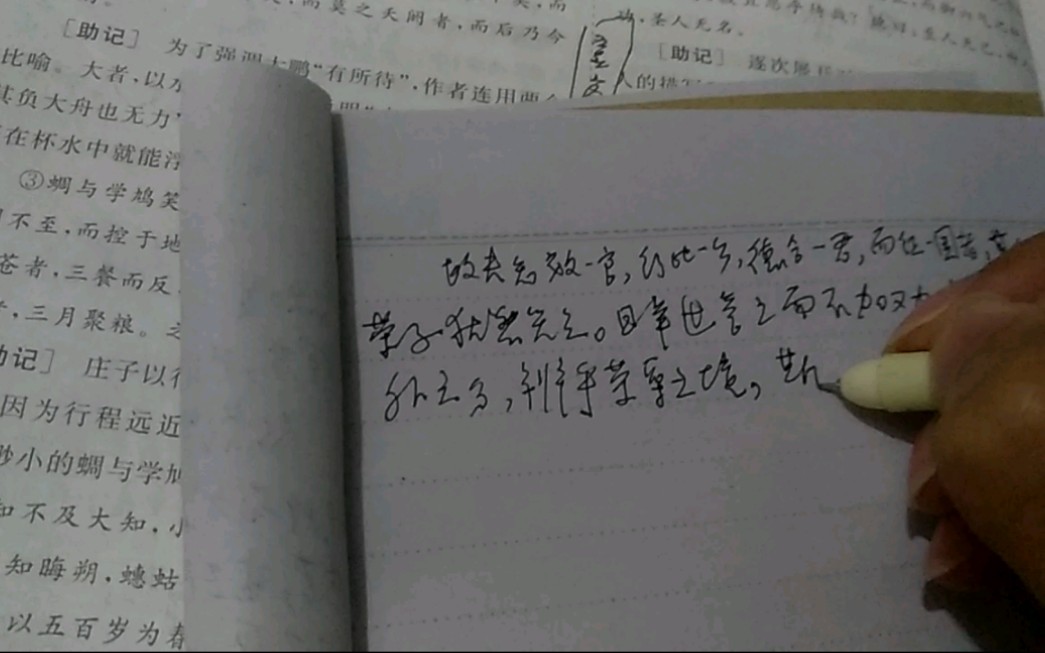 而莫之夭阏者,而后乃今
[助记] 为了强调大鹏“有所待”,作者连用两
比喻。大者,以水
其负大舟也无力
在杯水中就能浮
③蜩与学鸠笑
不至,而控于地
苍者,三餐而反
,三月聚粮。之
助记] 庄子以行
因为行程远近
渺小的蜩与学鸠
知不及大知,小
知晦朔,蟪蛄
以五百岁为春
,圣人无名。
[助记] 逐次
人的描写
故夫知效一官,行比一乡,德合一君,而征一国者,其
荣子犹然笑之。且举世誉之而不加
外之分,辩乎荣辱之境,其